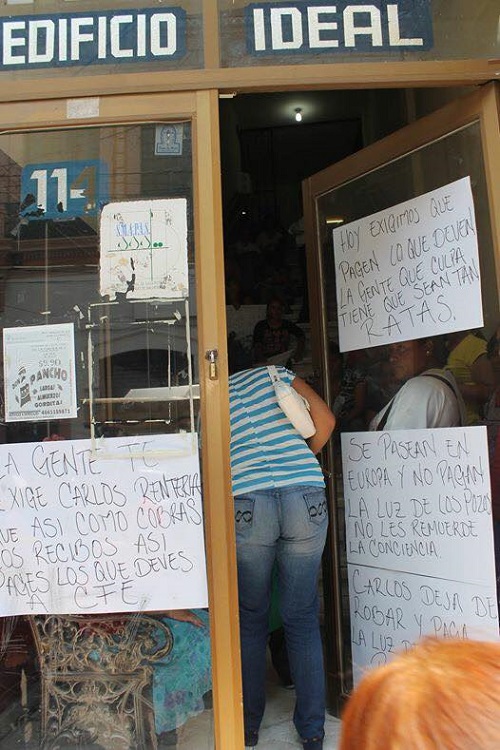 EDIFICIO IDEAL
11
S.M.A.P.A.S.
PANCHO
HOY EXIGIMOS QUE
PAGEN LO QUE DEVEN
LA GENTE QUE CULPA
TIENE QUE SEAN TAN
RATAS.
A GENTE TE
EXIGE CARLOS RENTERIA
QUE ASI COMO COBRAS
OS RECIBOS ASI
PAGES LOS QUE DEVES
A CFE
SE PASEAN EN
EUROPA Y NO PAGAN
LA LUZ DE LOS POZO
NO LES REMUERDE
LA CONCIENCIA.
CARLOS DEJA DE
ROBAR Y PAGA
LA LUZ